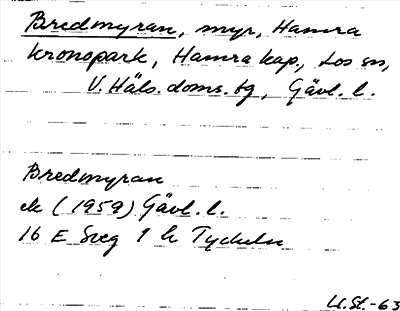 Bredmyran, myr, Hamra
kronopark, Hamra kap., Los sn,
V. Häls. doms. tg, Gävl. l.
Bredmyran
ek (1959) Gävl. l.
16 E Sveg 1 h
U.St.-63